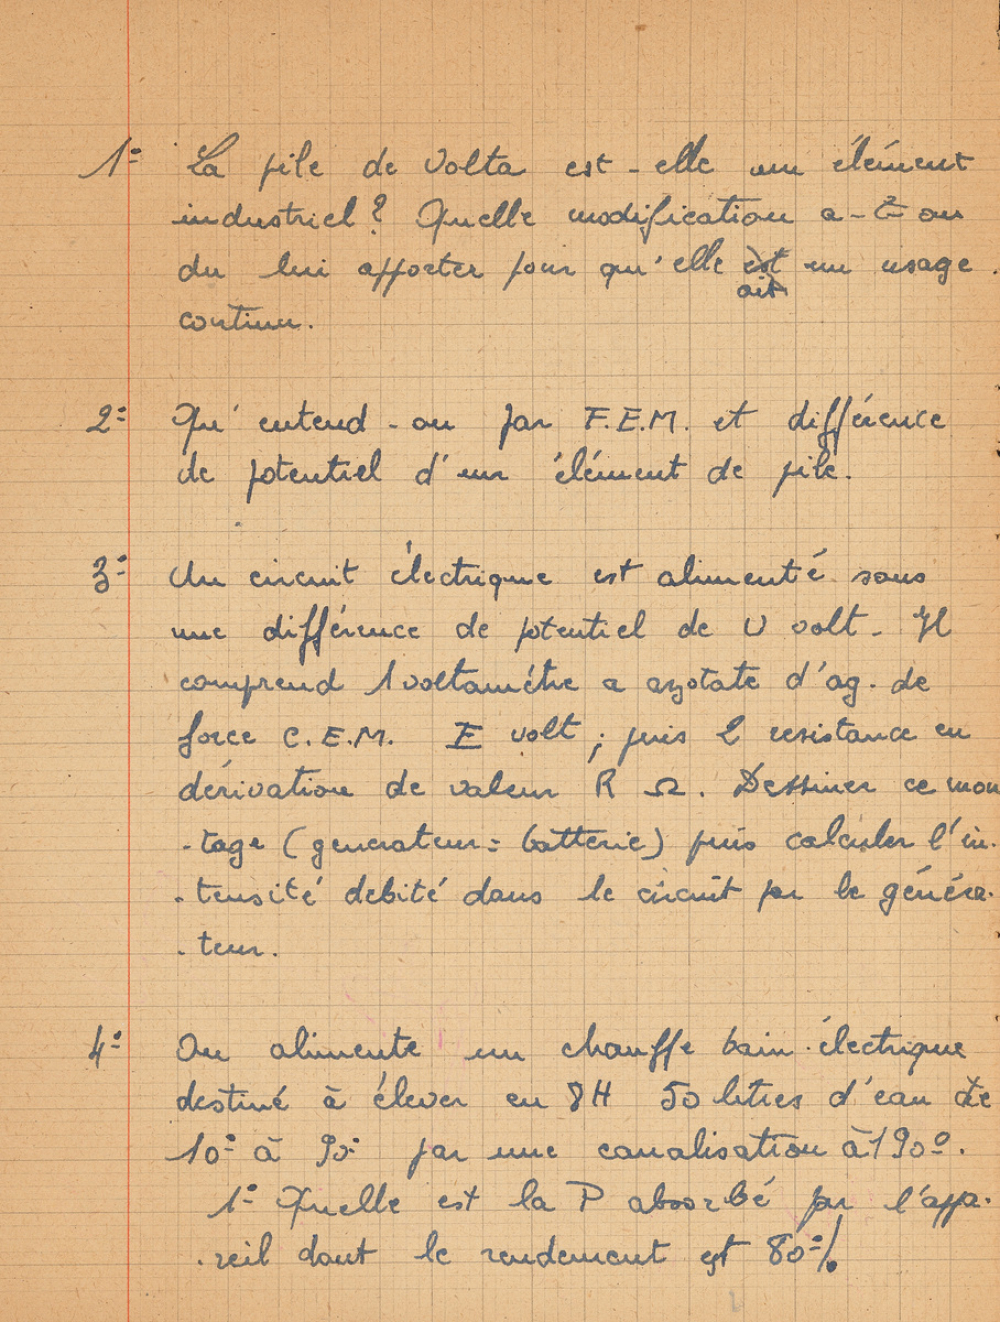 1º La pile de Volta est-elle un élément
industriel? Quelle modification a-t-on
du lui apporter pour qu'elle est un usage
ait
continu.
2º Qu'entend-on par F.E.M. et différence
de potentiel d'un élément de pile.
3º Un circuit électrique est alimenté sous
une différence de potentiel de U volt. Il
comprend 1 voltamétre a azotate d'ag. de
force C.E.M. E volt ; puis 2 resistance en
dérivation de valeur R Ω. Dessiner ce mon
-tage (generateur = batterie) puis calculer l'in-
-tensité debité dans le circuit par le généra-
-teur.
4º On alimente un chauffe bain électrique
destiné à élever en 8H 50 litres d'eau de
10º à 90º par une canalisation à 190º.
1º Quelle est la P absorbé par l'appa-
-reil dont le rendement est 80%